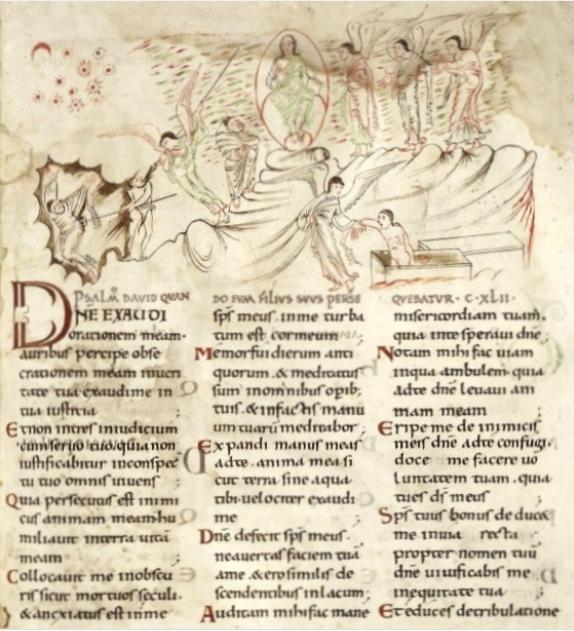 PSALM̄ DAVID QUAN DO EUM FILIUS SUUS PERSE QUEBATUR · C·XLII·
DNE EXAUDI
orationem meam·
auribus percipe obse
crationem meam inueri
tate tua exaudime in
tua iustitia ;
Et non intres iniudicium
cumseruo tuo, quia non
iustificabitur inconspec
tu tuo omnis uiuens ;
Quia persecutus est inimi
cus animam meam· hu
miliauit interra uitā
meam ;
Collocauit me inobscu
ris sicut mortuos sęculi·
& anxiatus est inme
sps meus· inme turba
tum est cormeum ;
Memorfui dierum anti
quorum· & meditatus
sum inomnibus opib;
tuis· & infactis manu
um tuarū meditabor ;
Expandi manus meas
adte· anima mea si
cut terra sine aqua
tibi· uelociter exaudi
me ;
Dne defecit sps meus·
neauertas faciem tuā
ame· & erosimilis de
scendentibus inlacum ;
Auditam mihi fac mane
misericordiam tuam·
quia inte speraui dne ;
Notam mihi fac uiam
inqua ambulem· quia
adte dne leuaui ani
mam meam ;
Eripe me de inimicis
meis dne adte confugi·
doce me facere uo
luntatem tuam· quia
tu es ds meus ;
Sps tuus bonus deduc&
me inuia recta ;
propter nomen tuū
dne uiuificabis me
inequitate tua ;
Et educes detribulatione